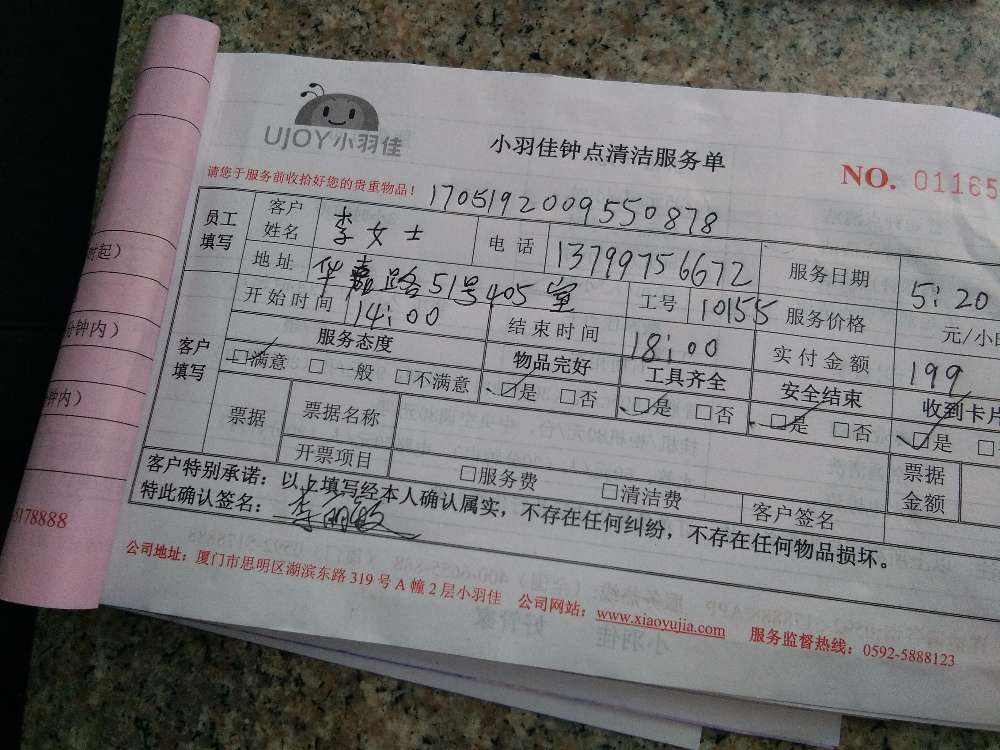 UJOY小羽佳
小羽佳钟点清洁服务单
NO. 01165
请您于服务前收拾好您的贵重物品！
1705192009550878
员工填写 客户姓名 李女士 电话 13799756672 服务日期 5:20
地址 华嘉路51号405室 工号 10155 服务价格 元/小
开始时间 14:00 结束时间 18:00 实付金额 199
客户填写 服务态度 物品完好 工具齐全 安全结束 收到卡片
☑满意 □一般 □不满意 ☑是 □否 ☑是 □否 ☑是 □否 ☑是 □
票据 票据名称 票据金额
开票项目 □服务费 □清洁费 客户签名
客户特别承诺：以上填写经本人确认属实，不存在任何纠纷，不存在任何物品损坏。
特此确认签名：李丽敏
公司地址：厦门市思明区湖滨东路319号A幢2层小羽佳 公司网站：www.xiaoyujia.com 服务监督热线：0592-5888123
时起）
分钟内）
钟内）
5178888